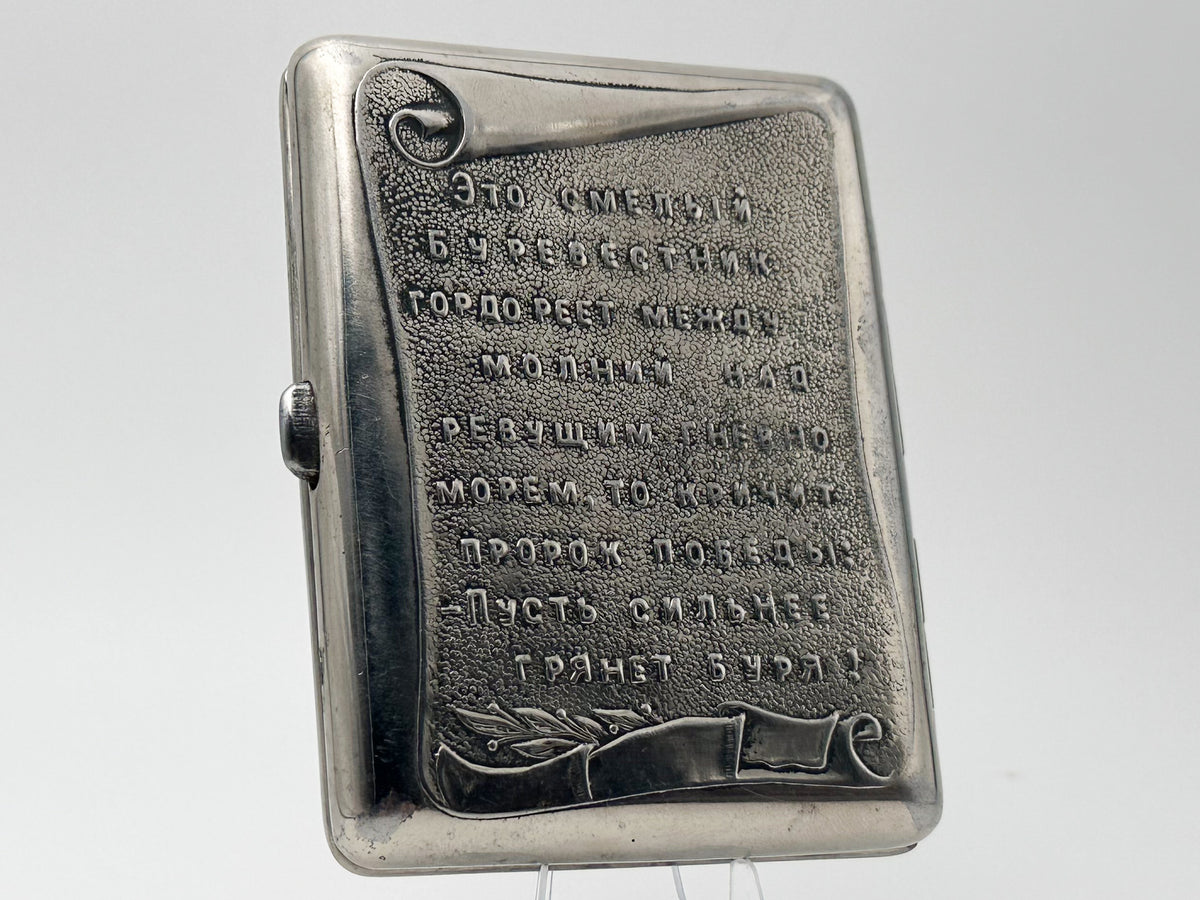 Это смелый
Буревестник
гордо реет между
молний над
ревущим гневно
морем, то кричит
пророк победы:
-Пусть сильнее
грянет буря!